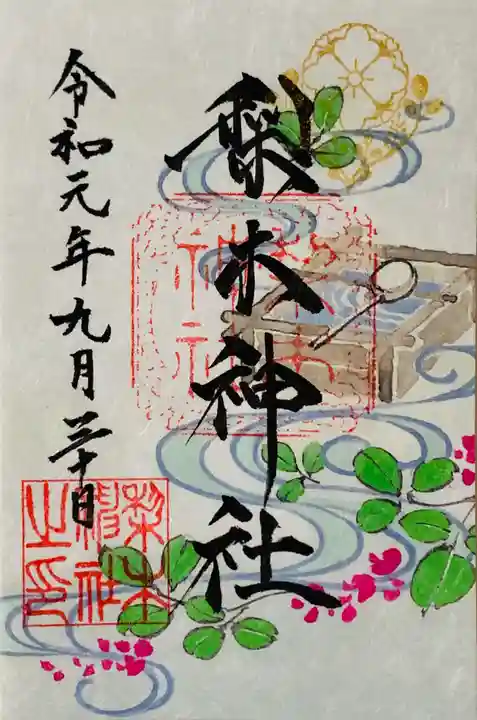 梨木神社
令和元年九月三十日
梨木
神社
梨木
神社
之印